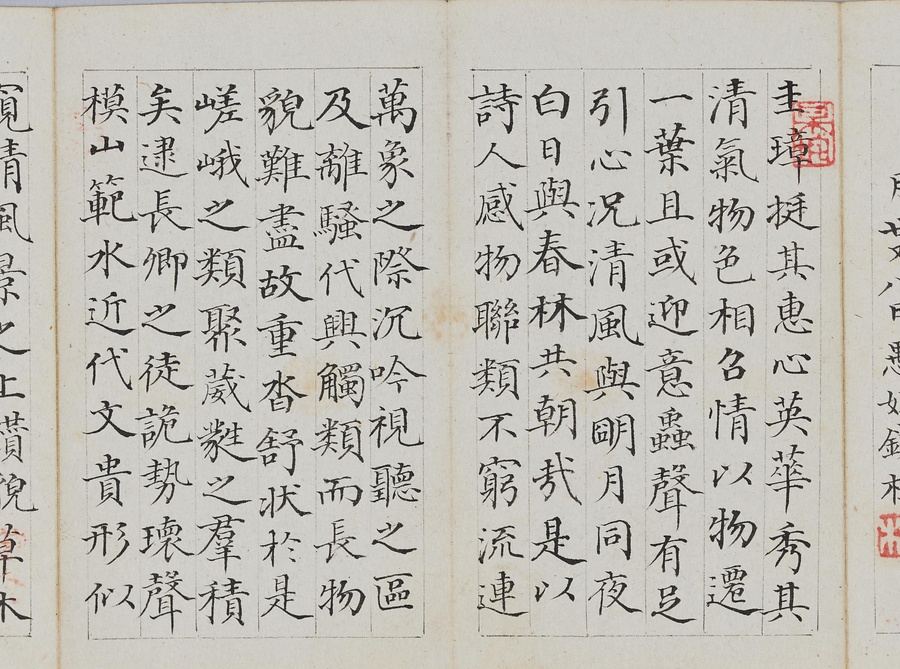 月廿八日
圭璋挺其惠心英華秀其
清氣物色相召情以物遷
一葉且或迎意蟲聲有足
引心況清風與朙月同夜
白日與春林共朝哉是以
詩人感物聯類不窮流連
萬象之際沉吟視聽之區
及離騷代興觸類而長物
貌難盡故重沓舒状於是
嵯峨之類聚葳蕤之羣積
矣逮長卿之徒詭勢瓌聲
模山範水近代文貴形似
窺情風景之上鑽貌草木